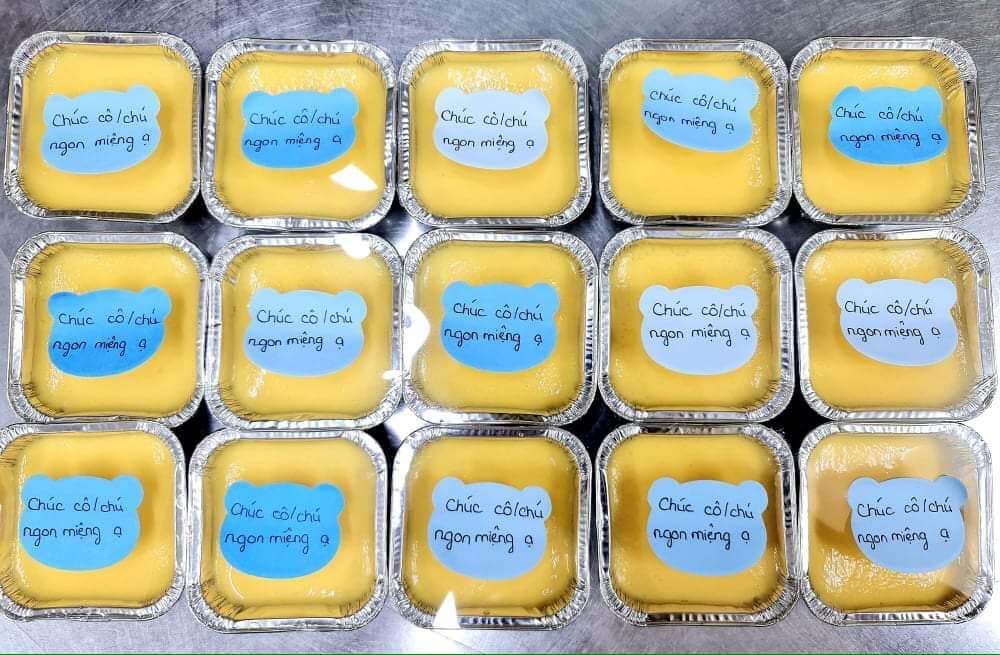 Chúc cô/chú
ngon miệng ạ
Chúc cô/chú
ngon miệng ạ
Chúc cô/chú
ngon miệng ạ
Chúc cô/chú
ngon miệng ạ
Chúc cô/chú
ngon miệng ạ
Chúc cô/chú
ngon miệng ạ
Chúc cô/chú
ngon miệng ạ
Chúc cô/chú
ngon miệng ạ
Chúc cô/chú
ngon miệng ạ
Chúc cô/chú
ngon miệng ạ
Chúc cô/chú
ngon miệng ạ
Chúc cô/chú
ngon miệng ạ
Chúc cô/chú
ngon miệng ạ
Chúc cô/chú
ngon miệng ạ
Chúc cô/chú
ngon miệng ạ